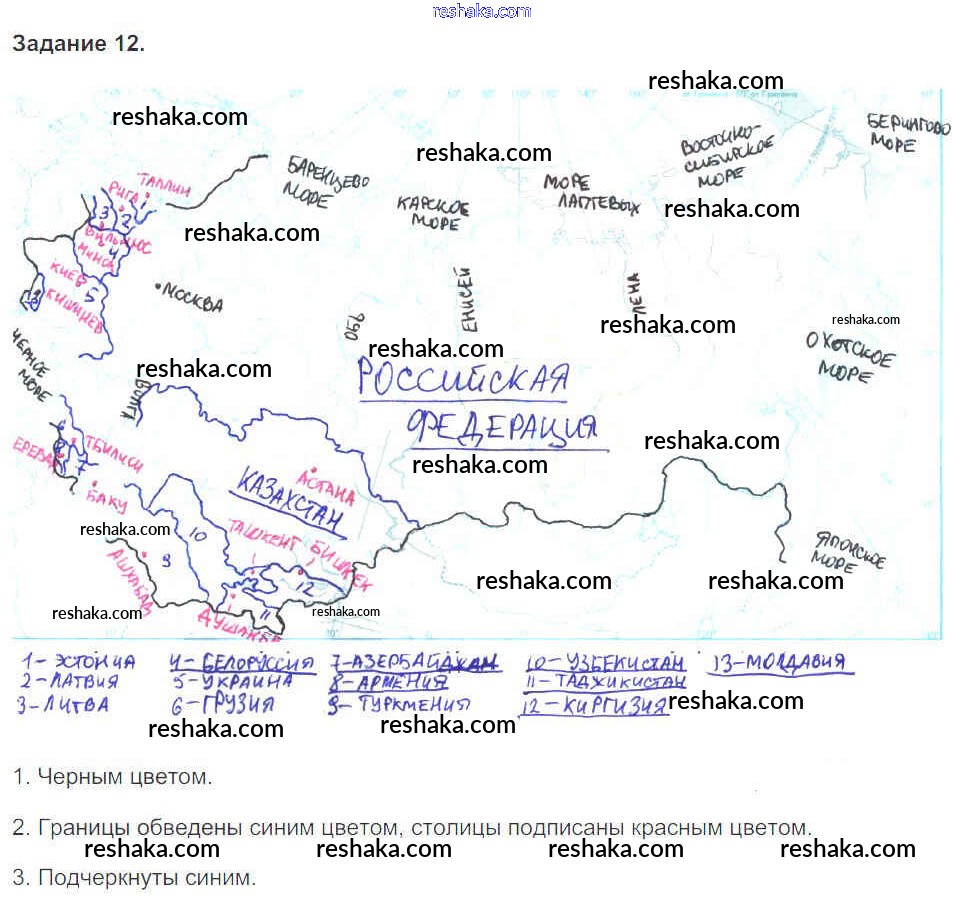 reshaka.com
Задание 12.
reshaka.com
reshaka.com
БЕРИНГОВО
МОРЕ
reshaka.com
ВОСТОЧНО-
СИБИРСКОЕ
МОРЕ
БАРЕНЦЕВО
МОРЕ
КАРСКОЕ
МОРЕ
МОРЕ
ЛАПТЕВЫХ
reshaka.com
ТАЛЛИН
РИГА
1
2
3
reshaka.com
ВИЛЬНЮС
4
МИНСК
КИЕВ
5
КИШИНЕВ
13
МОСКВА
ОБЬ
ЕНИСЕЙ
ЛЕНА
reshaka.com
reshaka.com
ОХОТСКОЕ
МОРЕ
ЧЕРНОЕ
МОРЕ
reshaka.com
reshaka.com
ВОЛГА
РОССИЙСКАЯ
ФЕДЕРАЦИЯ
reshaka.com
reshaka.com
6
8
7
ТБИЛИСИ
ЕРЕВАН
БАКУ
АСТАНА
КАЗАХСТАН
reshaka.com
10
9
ТАШКЕНТ
БИШКЕК
12
11
АШХАБАД
ДУШАНБЕ
reshaka.com
reshaka.com
reshaka.com
reshaka.com
ЯПОНСКОЕ
МОРЕ
1-ЭСТОНИЯ 4-БЕЛОРУССИЯ 7-АЗЕРБАЙДЖАН 10-УЗБЕКИСТАН 13-МОЛДАВИЯ
2-ЛАТВИЯ 5-УКРАИНА 8-АРМЕНИЯ 11-ТАДЖИКИСТАН
3-ЛИТВА 6-ГРУЗИЯ 9-ТУРКМЕНИЯ 12-КИРГИЗИЯ reshaka.com
reshaka.com reshaka.com
1. Черным цветом.
2. Границы обведены синим цветом, столицы подписаны красным цветом.
reshaka.com reshaka.com reshaka.com reshaka.com
3. Подчеркнуты синим.